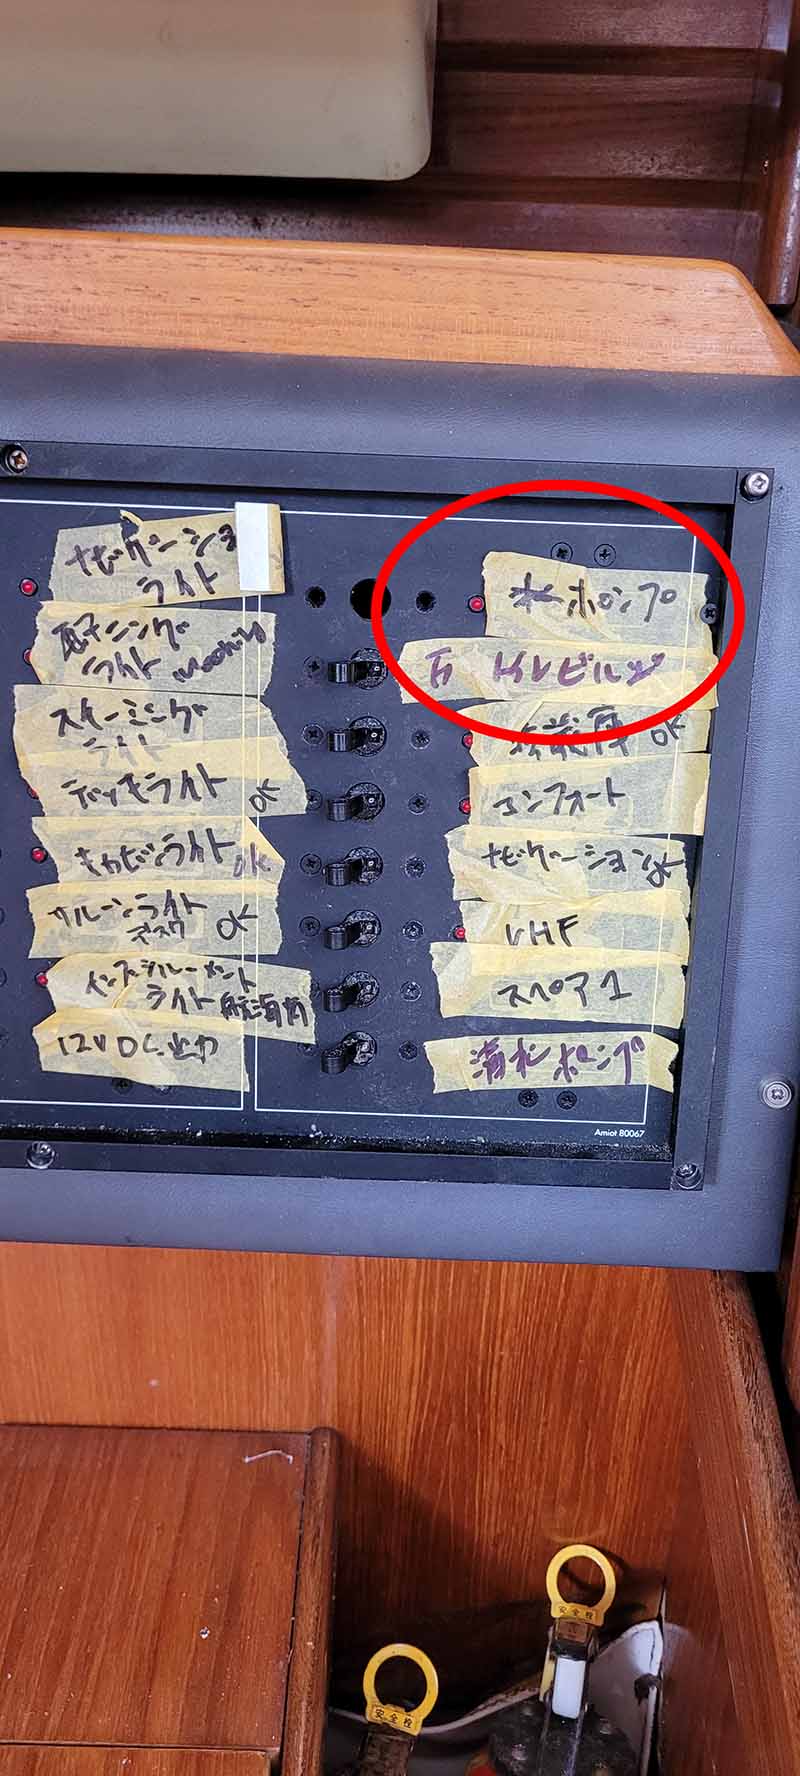 ナビゲーション
ライト
ライト mooring
スチーミング
ライト
デッキライト OK
キャビンライト OK
サルーンライト
デスク OK
インストルメント
ライト
12V DC出力
水ポンプ
トイレビルジ
冷蔵庫 OK
コンフォート
ナビゲーション OK
VHF
スペア1
清水ポンプ
Amiot 80067
安全栓
安全栓